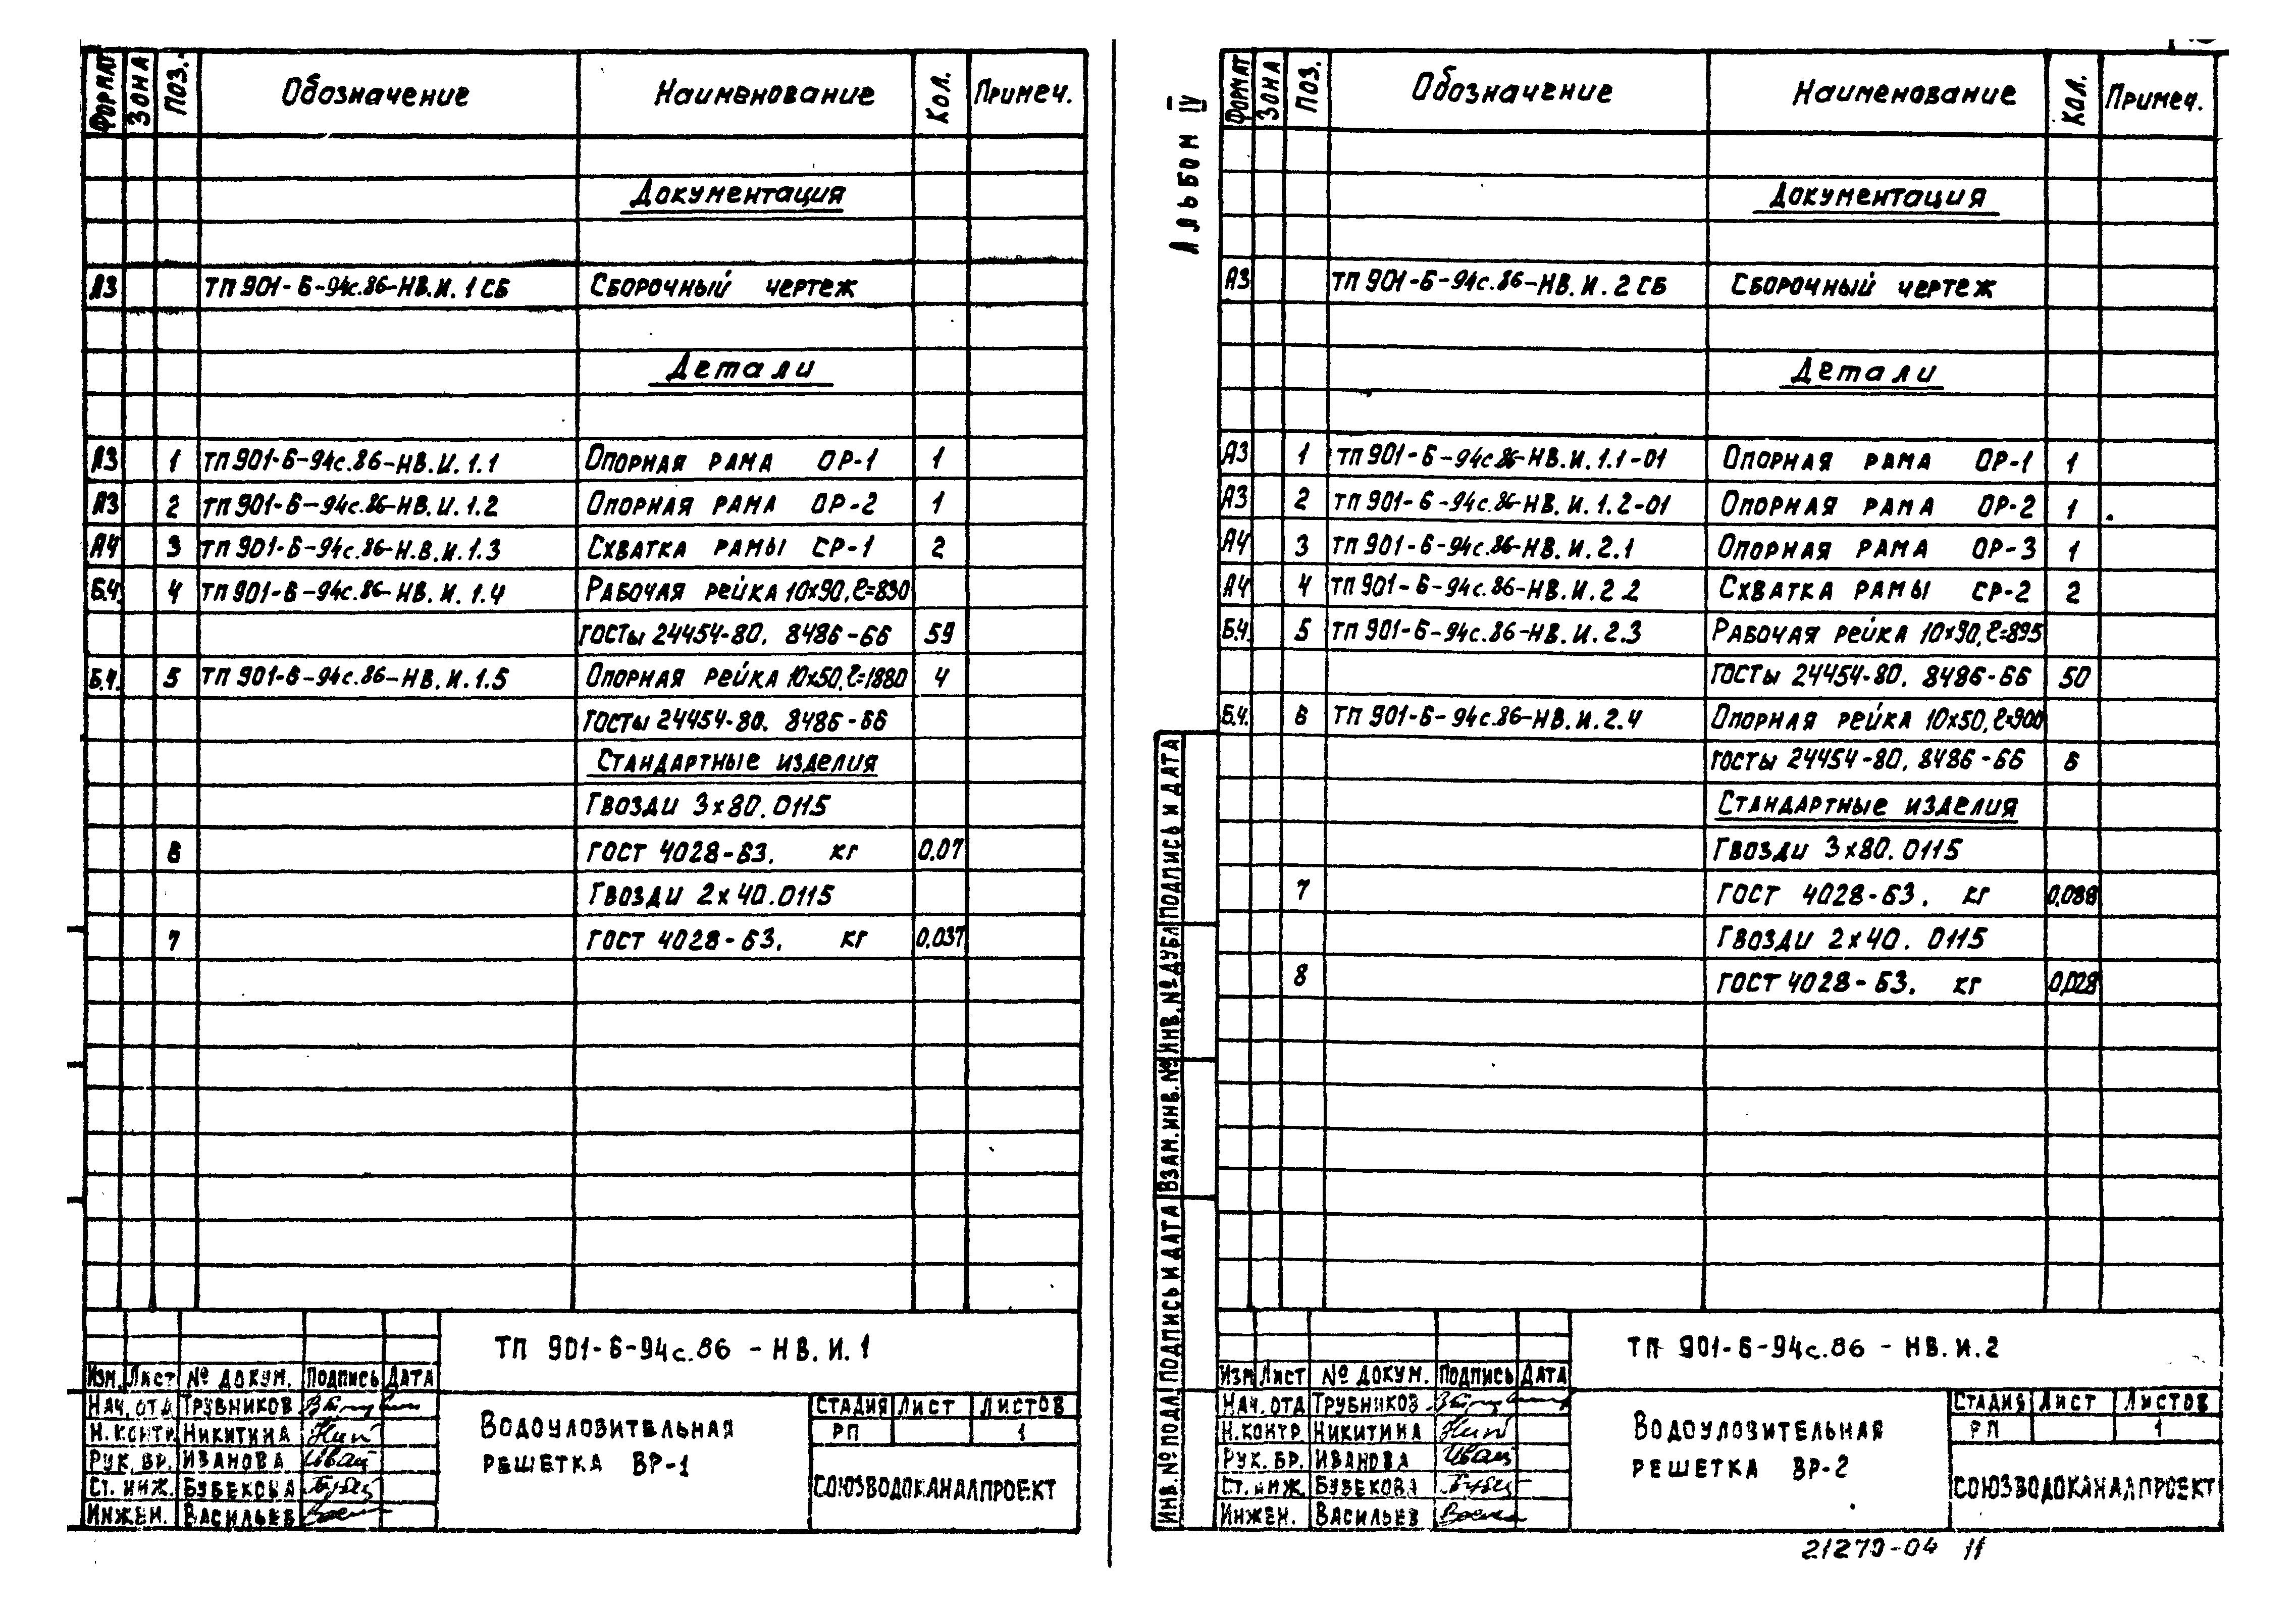 Формат Зона Поз. Обозначение Наименование Кол. Примеч.
Документация
А3 ТП 901-6-94с.86-НВ.И.1СБ Сборочный чертеж
Детали
А3 1 ТП 901-6-94с.86-НВ.И.1.1 Опорная рама ОР-1 1
А3 2 ТП 901-6-94с.86-НВ.И.1.2 Опорная рама ОР-2 1
А4 3 ТП 901-6-94с.86-Н.В.И.1.3 Схватка рамы СР-1 2
Б.4. 4 ТП 901-6-94с.86-НВ.И.1.4 Рабочая рейка 10х90, ℓ=830
ГОСТы 24454-80, 8486-66 59
Б.4. 5 ТП 901-6-94с.86-НВ.И.1.5 Опорная рейка 10х50, ℓ=1880 4
ГОСТы 24454-80, 8486-66
Стандартные изделия
Гвозди 3х80.0115
6 ГОСТ 4028-63. кг 0,07
Гвозди 2х40.0115
7 ГОСТ 4028-63. кг 0,037
ТП 901-6-94с.86 - НВ.И.1
Изм. Лист № докум. Подпись Дата
Нач. отд Трубников
Н.контр. Никитина
Рук. бр. Иванова
Ст. инж. Бубекова
Инжен. Васильев
Водоуловительная
решетка ВР-1
Стадия Лист Листов
РП 1
СОЮЗВОДОКАНАЛПРОЕКТ
Альбом IV
Формат Зона Поз. Обозначение Наименование Кол. Примеч.
Документация
А3 ТП 901-6-94с.86-НВ.И.2СБ Сборочный чертеж
Детали
А3 1 ТП 901-6-94с.86-НВ.И.1.1-01 Опорная рама ОР-1 1
А3 2 ТП 901-6-94с.86-НВ.И.1.2-01 Опорная рама ОР-2 1
А4 3 ТП 901-6-94с.86-НВ.И.2.1 Опорная рама ОР-3 1
А4 4 ТП 901-6-94с.86-НВ.И.2.2 Схватка рамы СР-2 2
Б.4. 5 ТП 901-6-94с.86-НВ.И.2.3 Рабочая рейка 10х90, ℓ=895
ГОСТы 24454-80, 8486-66 50
Б.4. 6 ТП 901-6-94с.86-НВ.И.2.4 Опорная рейка 10х50, ℓ=900
ГОСТы 24454-80, 8486-66 6
Стандартные изделия
Гвозди 3х80.0115
7 ГОСТ 4028-63. кг 0,088
Гвозди 2х40.0115
8 ГОСТ 4028-63. кг 0,028
Инв. № подл. Подпись и дата Взам. инв. № Инв. № дубл Подпись и дата
ТП 901-6-94с.86 - НВ.И.2
Изм Лист № докум. Подпись Дата
Нач. отд Трубников
Н.контр. Никитина
Рук. бр. Иванова
Ст. инж. Бубекова
Инжен. Васильев
Водоуловительная
решетка ВР-2
Стадия Лист Листов
РП 1
СОЮЗВОДОКАНАЛПРОЕКТ
21270-04 11